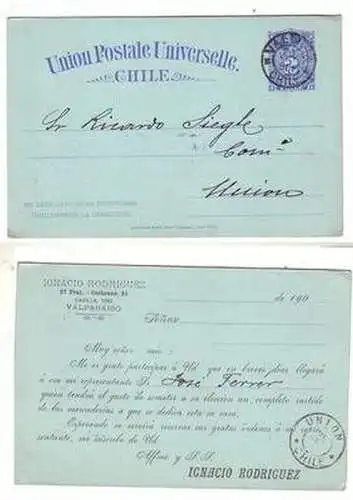 Union Postale Universelle.
CHILE
CHILE
Sr Ricardo Siegle
Com.ª
Union
IGNACIO RODRIGUEZ
VALPARAISO
de 190
Señor
Muy señor mio:
Me es grato participar á Ud. que en breves dias llegará
á esa mi representante Sr. José Ferrer
quien tendrá el gusto de someter a su eleccion un completo surtido
de las mercaderias a que se dedica esta su casa.
Esperando se servirá reservar sus gratas órdenes á mi repre-
sentante, me suscribo de Ud.
Affmo. y S. S.
IGNACIO RODRIGUEZ
UNION
CHILE